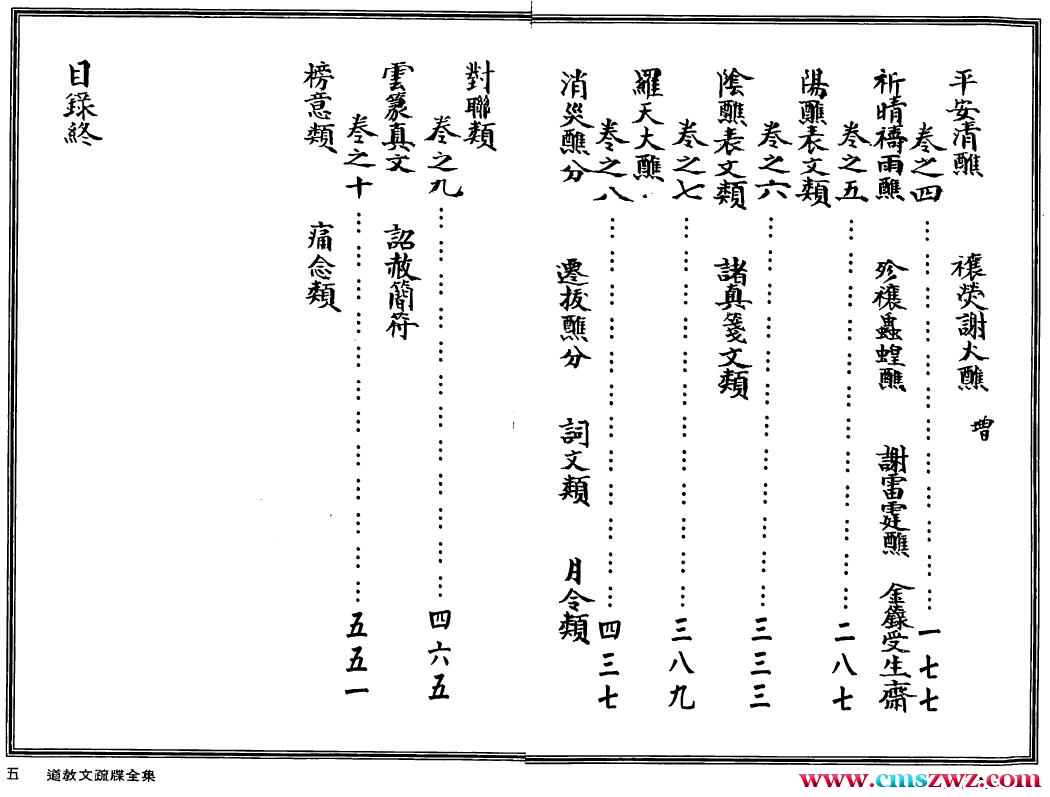 平安清醮 禳熒謝火醮 增
卷之四……………………一七七
祈晴禱雨醮 殄禳蟲蝗醮 謝雷霆醮 金籙受生齋
卷之五……………………二八七
陽醮表文類
卷之六……………………三三三
陰醮表文類 諸真箋文類
卷之七……………………三八九
羅天大醮
卷之八……………………四三七
消災醮分 遷拔醮分 詞文類 月令類
對聯類
卷之九……………………四六五
雲篆真文 詔赦簡符
卷之十……………………五五一
榜意類 痛念類
目錄終
五 道教文疏牒全集
www.cmszwz.com